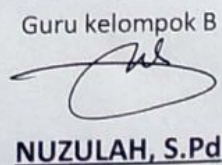 Guru kelompok B
NUZULAH, S.Pd